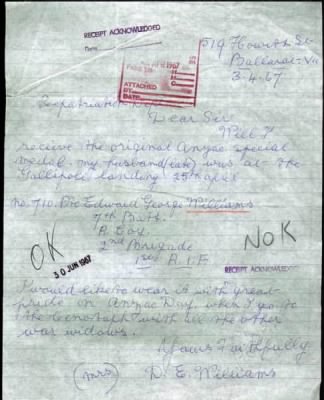 RECEIPT ACKNOWLEDGED
519 Howitt St
Ballarat. Vic
3-4-67
1967
ATTACHED
BY
DATE
Repatriation Dept
Dear Sir
Will I
receive the original Anzac special
medal. my husband (late) was at the
Gallipoli landing 25th April
no. 710. Pte Edward George Williams
7th Batt.
A Coy.
2nd Brigade
1st A.I.F
OK
NoK
30 JUN 1967
RECEIPT ACKNOWLEDGED
I would like to wear it with great
pride on Anzac Day, when I go to
the Cenotaph with all the other
war widows.
Yours Faithfully
(Mrs) D. E. Williams